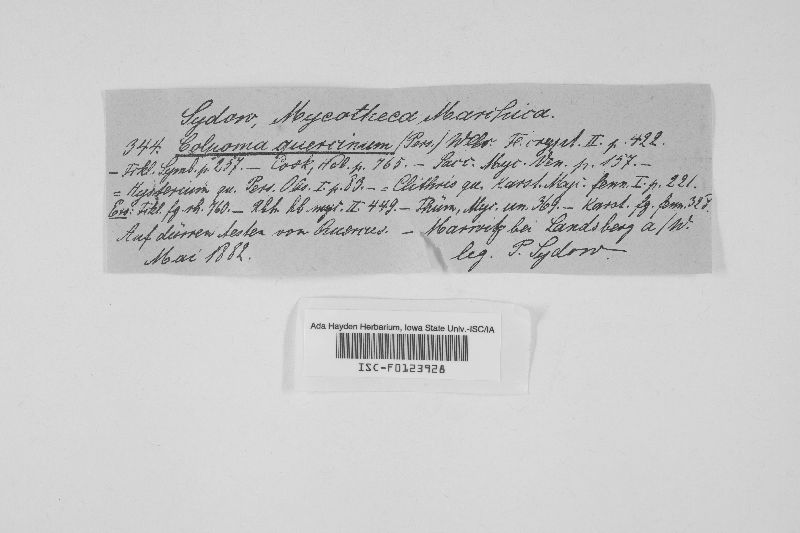 Sydow, Mycotheca Marchica.
344. Colpoma quercinum (Pers.) Wallr. Fl. crypt. II. p. 422.
– Fckl. Symb. p. 257. – Cook, Hdb. p. 765. – Sacc. Myc. Ven. p. 157. –
= Hysterium qu. Pers. Obs. I. p. 83. – = Clithris qu. Karst. Myc. fenn. I. p. 221.
Exs: Fckl. fg. rh. 760. – Rbh. hb. myc. II. 449. – Thüm. Myc. un. 369. – Karst. fg. fenn. 328.
Auf dürren Aesten von Quercus. – Marwitz bei Landsberg a/W.
Mai 1882. leg. P. Sydow.
Ada Hayden Herbarium, Iowa State Univ.-ISC/IA
ISC-F0123928